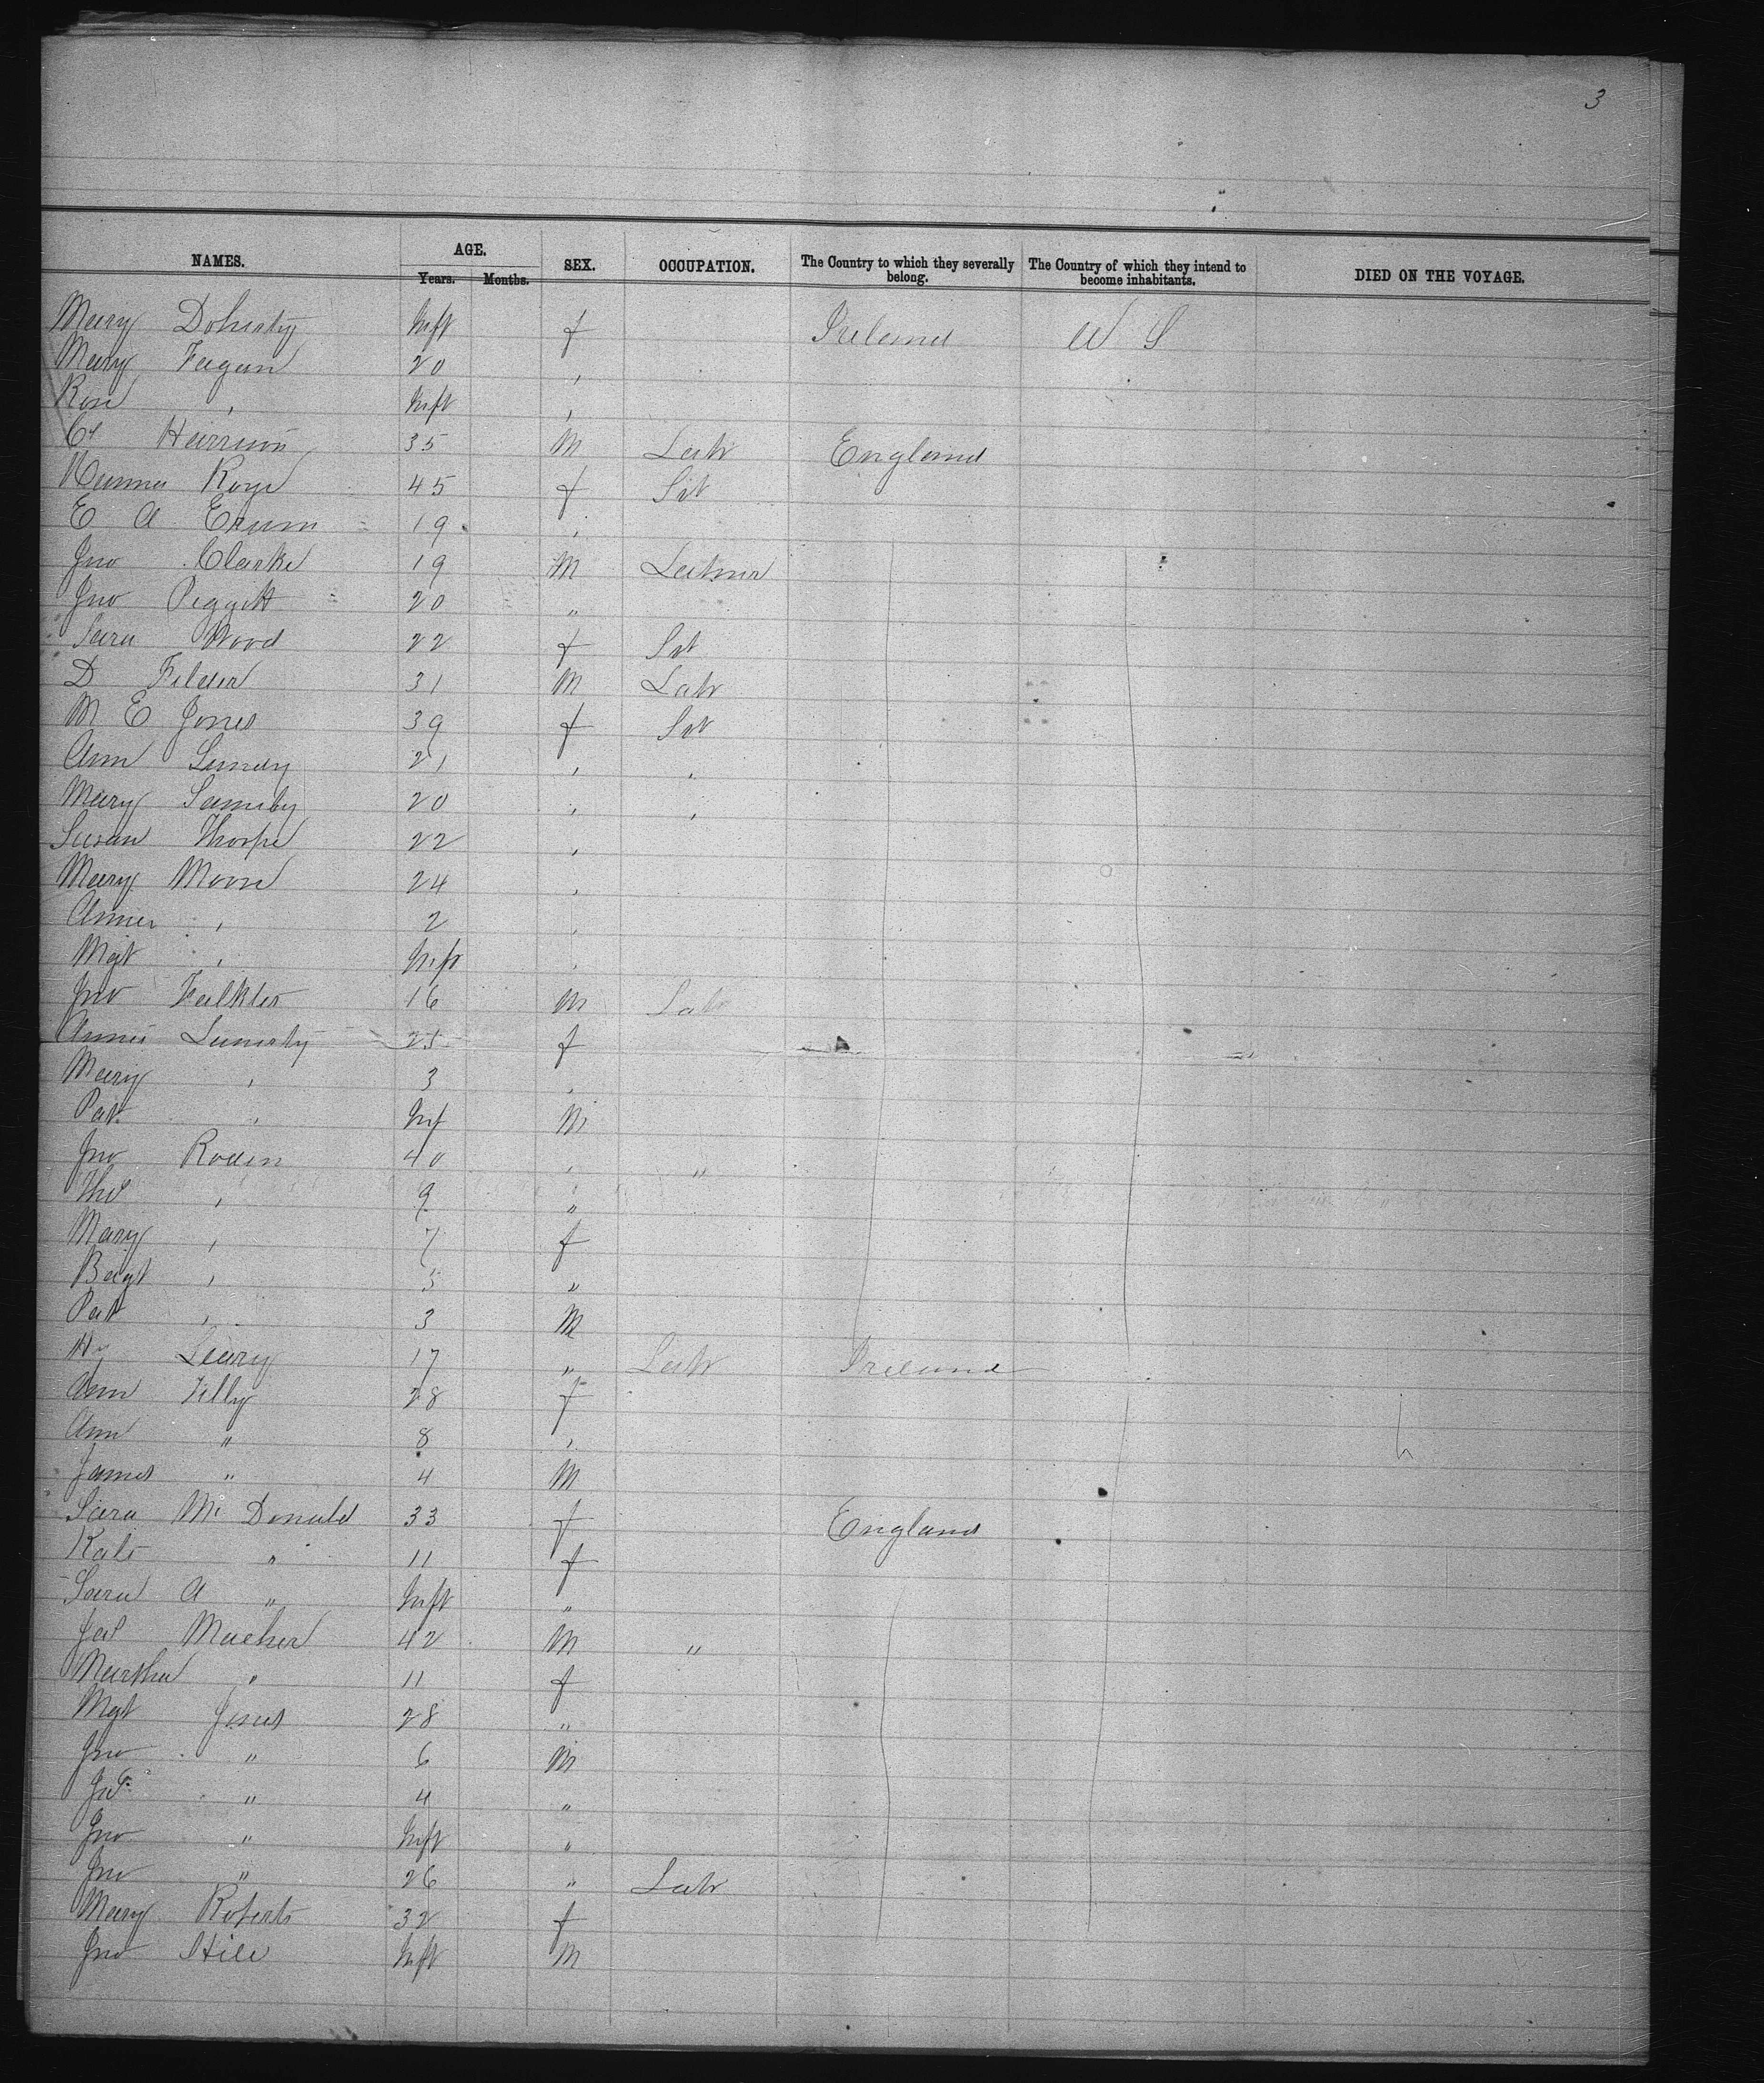 3
NAMES. AGE. SEX. OCCUPATION. The Country to which they severally belong. The Country of which they intend to become inhabitants. DIED ON THE VOYAGE.
Years. Months.
Mary Doherty Inft f Ireland U S
Mary Fagan 20 ,
Rose , Inft ,
Harrison 35 M Labr England
45 f
E A 19 ,
Jno Clarke 19 M
Jno Piggott 20 "
Sara Wood 22 f
D 31 M Labr
M E Jones 39 f
Ann 21 , ,
Mary 20 , ,
Susan Thorpe 22 ,
Mary Moore 24 ,
Annie , 2 ,
Mgt , Inft ,
Jno 16 M Labr
Annie 25 f
Mary , 3 ,
Pat , Inf M
Jno Roden 40 , "
Thos , 9 "
Mary , 7 f
, 5 "
Pat , 3 M
Hy Leary 17 " Labr Ireland
Ann 28 f
Ann " 8 ,
James " 4 M
Sara Mc Donald 33 f England
Kate " 11 f
Sara A " Inft "
Jas 42 M "
Martha " 11 f
Mgt Jones 28 "
Jno " 6 M
" 4 "
Jno " Inft "
Jno " 26 " Labr
Mary Roberts 32 f
Jno Inft M